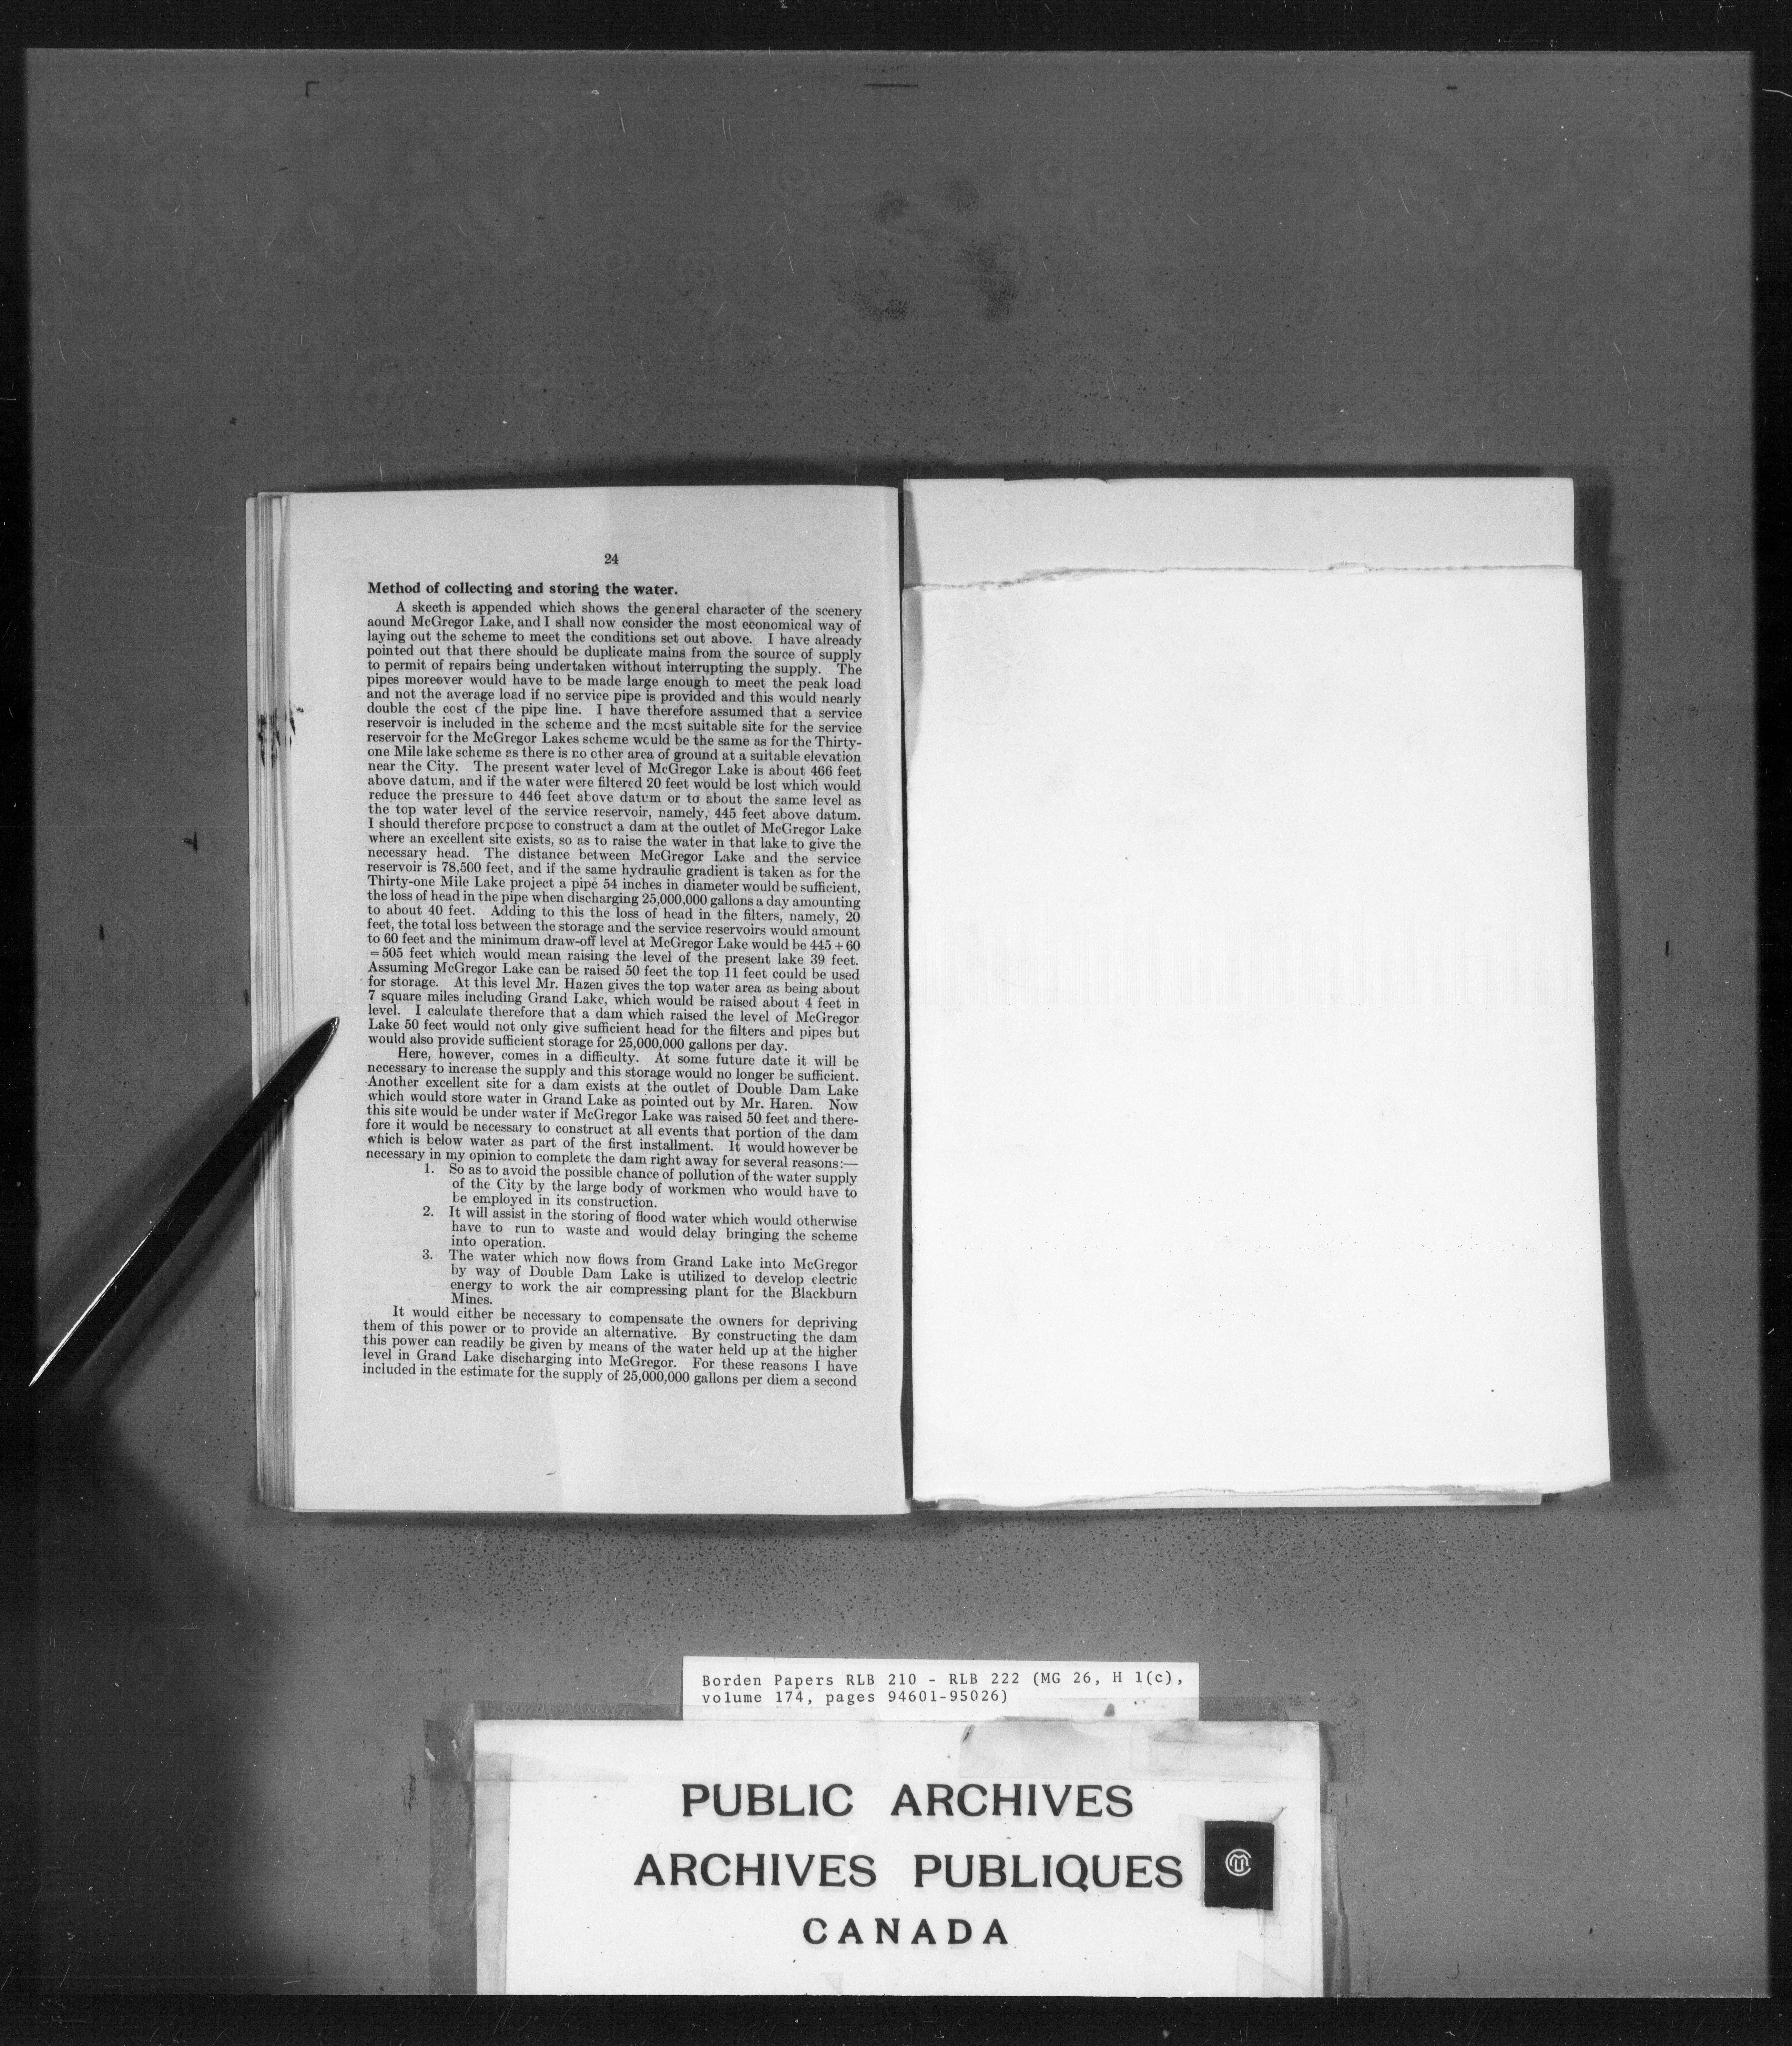 24
Method of collecting and storing the water.
A skecth is appended which shows the general character of the scenery
aound McGregor Lake, and I shall now consider the most economical way of
laying out the scheme to meet the conditions set out above. I have already
pointed out that there should be duplicate mains from the source of supply
to permit of repairs being undertaken without interrupting the supply. The
pipes moreover would have to be made large enough to meet the peak load
and not the average load if no service pipe is provided and this would nearly
double the cost of the pipe line. I have therefore assumed that a service
reservoir is included in the scheme and the most suitable site for the service
reservoir for the McGregor Lakes scheme would be the same as for the Thirty-
one Mile lake scheme as there is no other area of ground at a suitable elevation
near the City. The present water level of McGregor Lake is about 466 feet
above datum, and if the water were filtered 20 feet would be lost which would
reduce the pressure to 446 feet above datum or to about the same level as
the top water level of the service reservoir, namely, 445 feet above datum.
I should therefore propose to construct a dam at the outlet of McGregor Lake
where an excellent site exists, so as to raise the water in that lake to give the
necessary head. The distance between McGregor Lake and the service
reservoir is 78,500 feet, and if the same hydraulic gradient is taken as for the
Thirty-one Mile Lake project a pipe 54 inches in diameter would be sufficient,
the loss of head in the pipe when discharging 25,000,000 gallons a day amounting
to about 40 feet. Adding to this the loss of head in the filters, namely, 20
feet, the total loss between the storage and the service reservoirs would amount
to 60 feet and the minimum draw-off level at McGregor Lake would be 445 + 60
= 505 feet which would mean raising the level of the present lake 39 feet.
Assuming McGregor Lake can be raised 50 feet the top 11 feet could be used
for storage. At this level Mr. Hazen gives the top water area as being about
7 square miles including Grand Lake, which would be raised about 4 feet in
level. I calculate therefore that a dam which raised the level of McGregor
Lake 50 feet would not only give sufficient head for the filters and pipes but
would also provide sufficient storage for 25,000,000 gallons per day.
Here, however, comes in a difficulty. At some future date it will be
necessary to increase the supply and this storage would no longer be sufficient.
Another excellent site for a dam exists at the outlet of Double Dam Lake
which would store water in Grand Lake as pointed out by Mr. Haren. Now
this site would be under water if McGregor Lake was raised 50 feet and there-
fore it would be necessary to construct at all events that portion of the dam
which is below water as part of the first installment. It would however be
necessary in my opinion to complete the dam right away for several reasons:—
1. So as to avoid the possible chance of pollution of the water supply
of the City by the large body of workmen who would have to
be employed in its construction.
2. It will assist in the storing of flood water which would otherwise
have to run to waste and would delay bringing the scheme
into operation.
3. The water which now flows from Grand Lake into McGregor
by way of Double Dam Lake is utilized to develop electric
energy to work the air compressing plant for the Blackburn
Mines.
It would either be necessary to compensate the owners for depriving
them of this power or to provide an alternative. By constructing the dam
this power can readily be given by means of the water held up at the higher
level in Grand Lake discharging into McGregor. For these reasons I have
included in the estimate for the supply of 25,000,000 gallons per diem a second
Borden Papers RLB 210 - RLB 222 (MG 26, H 1(c),
volume 174, pages 94601-95026)
PUBLIC ARCHIVES
ARCHIVES PUBLIQUES
CANADA